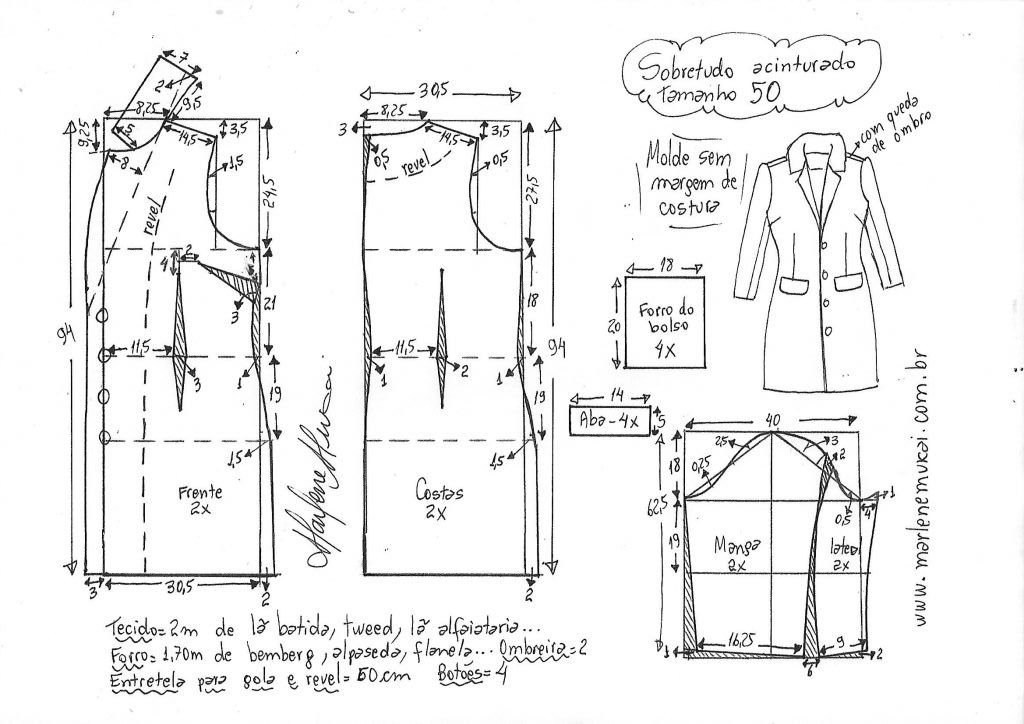 Sobretudo acinturado
Tamanho 50
com queda
de ombro
Molde sem
margem de
costura
7
2
9,5
8,25
9,25
5
8
14,5
3,5
1,5
24,5
revel
4
2
3
21
94
11,5
3
1
19
1,5
Frente
2x
3
30,5
2
Marlene Mukai
30,5
8,25
3
0,5
14,5
3,5
revel
0,5
27,5
18
11,5
2
1
1
94
19
1,5
Costas
2x
2
18
20
Forro do
bolso
4x
14
Aba - 4x
5
40
2,5
3
2
18
0,25
1
0,5
4
62,5
19
Manga
2x
lateral
2x
16,25
9
1
6
2
www.marlenemukai.com.br
Tecido= 2m de lã batida, tweed, lã alfaiataria...
Forro= 1,70m de bemberg, alpaseda, flanela... Ombreira=2
Entretela para gola e revel= 50cm Botões= 4